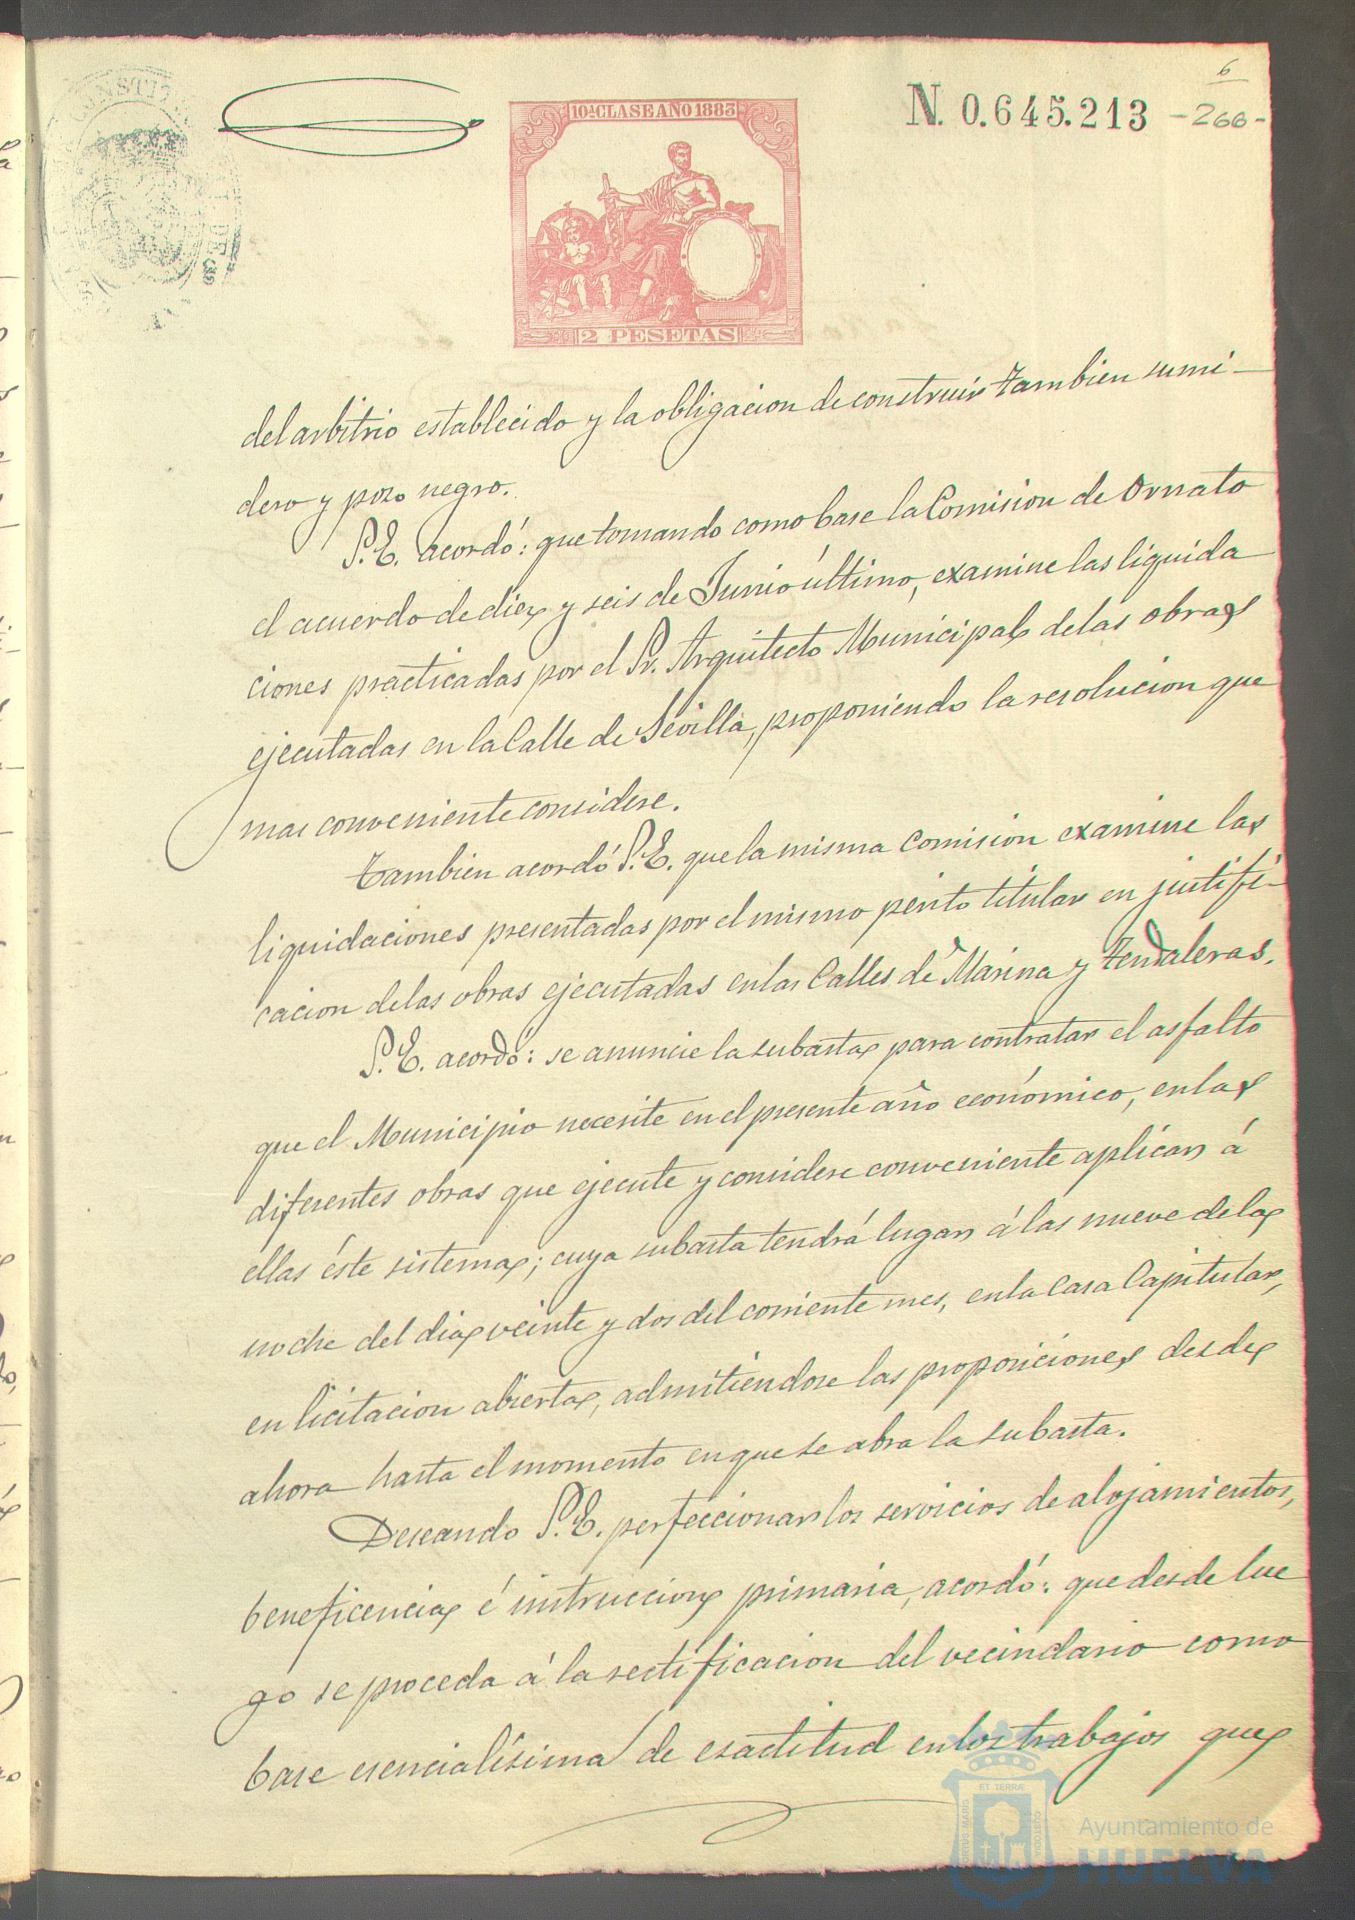 6
10ª CLASE AÑO 1883
N. 0.645.213
-266-
CONSTIT
2 PESETAS
del arbitrio establecido y la obligacion de construir tambien sumi-
dero y pozo negro.
S.E. acordó: que tomando como base la Comision de Ornato
el acuerdo de diez y seis de Junio último, examine las liquida
ciones practicadas por el Sr. Arquitecto Municipal de las obras
ejecutadas en la Calle de Sevilla, proponiendo la resolucion que
mas conveniente considere.
Tambien acordó S.E. que la misma Comision examine las
liquidaciones presentadas por el mismo perito titular en justifi-
cacion de las obras ejecutadas en las Calles de Marina y Tendaleras.
S.E. acordó: se anuncie la subasta para contratar el asfalto
que el Municipio necesite en el presente año económico, en las
diferentes obras que ejecute y considere conveniente aplicar á
ellas éste sistema; cuya subasta tendrá lugar á las nueve de la
noche del dia veinte y dos del corriente mes, en la Casa Capitular,
en licitacion abierta, admitiéndose las proposiciones desde
ahora hasta el momento en que se abra la subasta.
Deseando S.E. perfeccionar los servicios de alojamientos,
beneficencia é instruccion primaria, acordó: que desde lue
go se proceda á la rectificacion del vecindario como
base esencialísima de esactitud en los trabajos que
ET TERRÆ
Ayuntamiento de
HUELVA